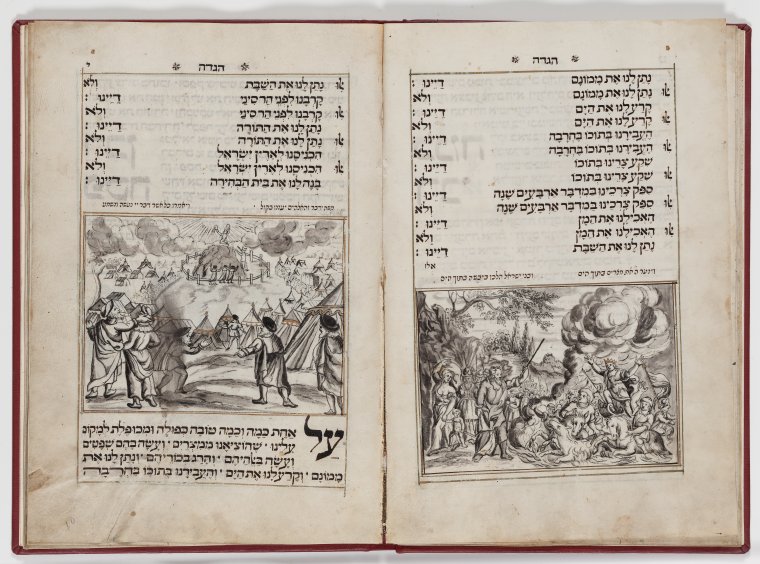 הגדה
נתן לנו את ממונם דיינו:
אלו נתן לנו את ממונם ולא
קרע לנו את הים דיינו:
אלו קרע לנו את הים ולא
העבירנו בתוכו בחרבה דיינו:
אלו העבירנו בתוכו בחרבה ולא
שקע צרינו בתוכו דיינו:
אלו שקע צרינו בתוכו ולא
ספק צרכינו במדבר ארבעים שנה דיינו:
אלו ספק צרכינו במדבר ארבעים שנה ולא
האכילנו את המן דיינו:
אלו האכילנו את המן ולא
נתן לנו את השבת דיינו:
אלו
וינער ה את מצרים בתוך הים ובני ישראל הלכו ביבשה בתוך הים
הגדה י
אלו נתן לנו את השבת ולא
קרבנו לפני הר סיני דיינו:
אלו קרבנו לפני הר סיני ולא
נתן לנו את התורה דיינו:
אלו נתן לנו את התורה ולא
הכניסנו לארץ ישראל דיינו:
אלו הכניסנו לארץ ישראל ולא
בנה לנו את בית הבחירה דיינו:
משה ידבר והאלהים יעננו בקול ויאמרו כל אשר דבר יי נעשה ונשמע
על אחת כמה וכמה טובה כפולה ומכופלת למקום
עלינו שהוציאנו ממצרים ועשה בהם שפטים
ועשה באלהיהם והרג בכוריהם ונתן לנו את
ממונם וקרע לנו את הים והעבירנו בתוכו בחרבה
10